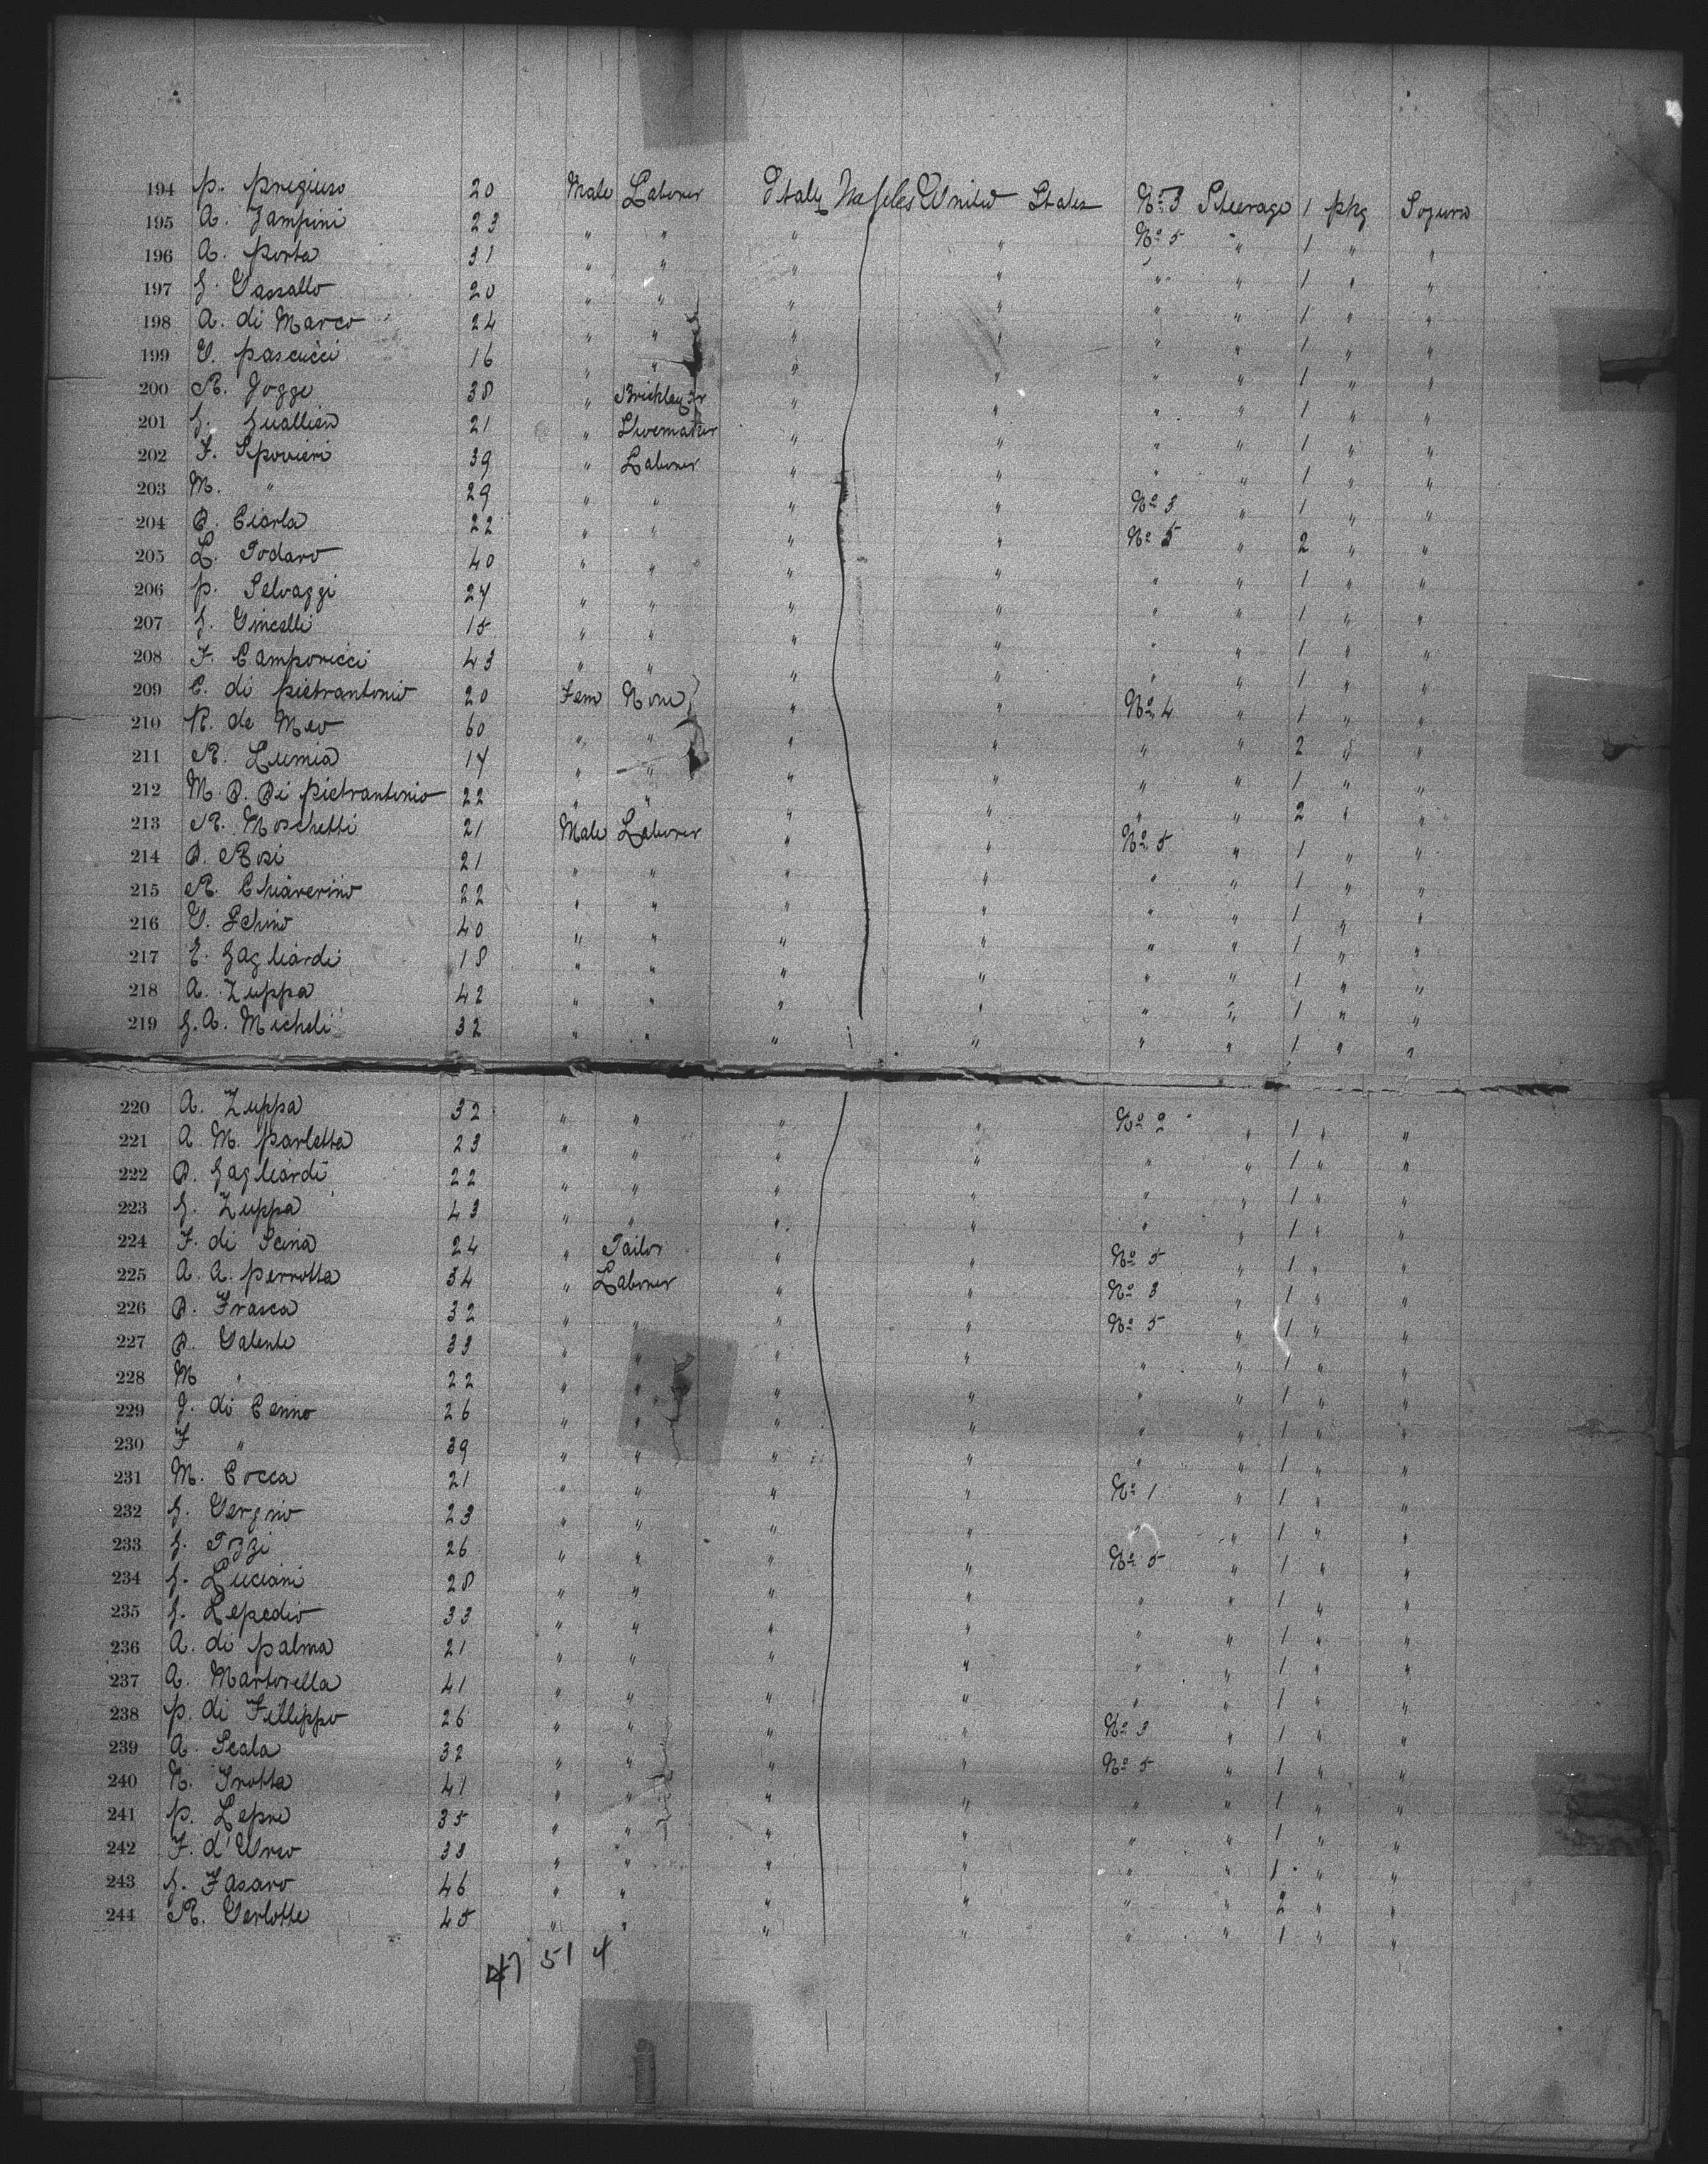 194 P. Pregiuso 20 Male Laborer Italy Naples United States No 3 Steerage 1 pkg Sojourn
195 A. Zampini 23 " " " " No 5 " 1 " "
196 A. Porta 31 " " " " " " 1 " "
197 G. Vassallo 20 " " " " " " 1 " "
198 A. di Marco 24 " " " " " " 1 " "
199 V. Pascucci 16 " " " " " " 1 " "
200 R. Jogge 38 " Bricklayer " " " " 1 " "
201 G. 21 " Shoemaker " " " " 1 " "
202 F. Spovieri 39 " Laborer " " " " 1 " "
203 M. " 29 " " " " No 3 " 1 " "
204 D. Ciarla 22 " " " " No 5 " 2 " "
205 L. Todaro 40 " " " " " " 1 " "
206 P. Selvaggi 27 " " " " " " 1 " "
207 G. Vincelli 15 " " " " " " 1 " "
208 F. Camporicci 43 " " " " " " 1 " "
209 C. di Pietrantonio 20 Fem None " " No 4 " 1 " "
210 R. de Meo 60 " " " " " " 2 " "
211 R. Lumia 17 " " " " " " 1 " "
212 M. D. Di Pietrantonio 22 " " " " " " 2 " "
213 R. Moschetti 21 Male Laborer " " No 5 " 1 " "
214 D. Rosi 21 " " " " " " 1 " "
215 R. Chiaverino 22 " " " " " " 1 " "
216 V. Schino 40 " " " " " " 1 " "
217 E. Gagliardi 18 " " " " " " 1 " "
218 A. Zuppa 42 " " " " " " 1 " "
219 G. A. Micheli 32 " " " " " " 1 " "
220 A. Zuppa 32 " " " " No 2 " 1 " "
221 A. M. Parletta 23 " " " " " " 1 " "
222 D. Gagliardi 22 " " " " " " 1 " "
223 G. Zuppa 43 " " " " " " 1 " "
224 F. di Scina 24 " Tailor " " No 5 " 1 " "
225 A. A. Perrotta 34 " Laborer " " No 3 " 1 " "
226 D. Frasca 32 " " " " No 5 " 1 " "
227 D. Valente 33 " " " " " " 1 " "
228 M " 22 " " " " " " 1 " "
229 G. di Cenno 26 " " " " " " 1 " "
230 F " 39 " " " " " " 1 " "
231 M. Cocca 21 " " " " No 1 " 1 " "
232 G. Vergnio 23 " " " " " " 1 " "
233 G. Tozzi 26 " " " " No 5 " 1 " "
234 G. Luciani 28 " " " " " " 1 " "
235 G. Lepedio 33 " " " " " " 1 " "
236 A. di Palma 21 " " " " " " 1 " "
237 A. Martorella 41 " " " " " " 1 " "
238 P. di Fillippo 26 " " " " No 3 " 1 " "
239 A. Scala 32 " " " " No 5 " 1 " "
240 N. Trotta 41 " " " " " " 1 " "
241 P. Lepre 35 " " " " " " 1 " "
242 F. d'Urso 33 " " " " " " 1 " "
243 G. Fasaro 46 " " " " " " 2 " "
244 R. Verlotte 45 " " " " " " 1 " "
47 51 4